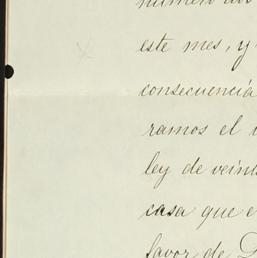 número dos
este mes, y
consecuencia
ramos el
ley de veint
casa que e
favor de D